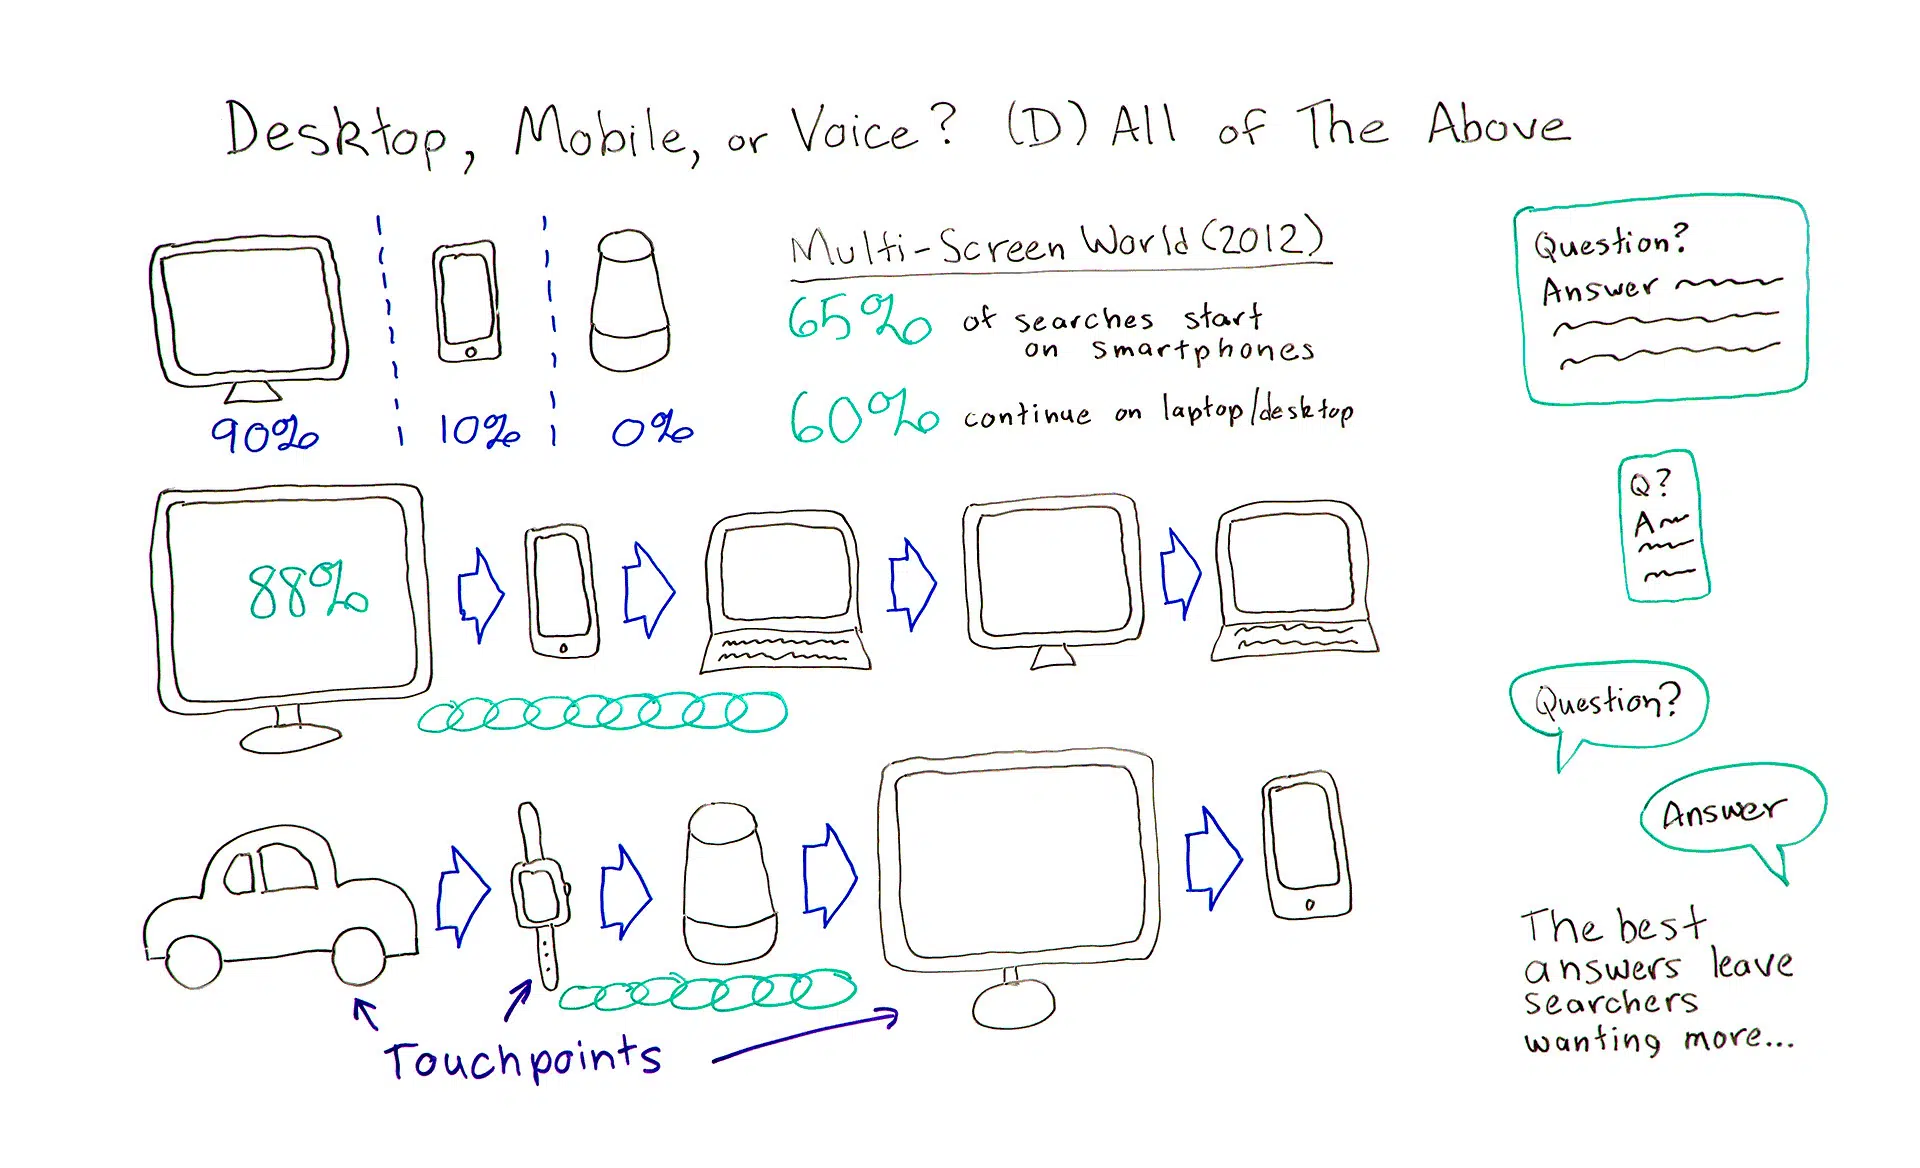 Desktop, Mobile, or Voice? (D) All of The Above
90%
10%
0%
Multi-Screen World (2012)
65% of searches start
on smartphones
60% continue on laptop/desktop
88%
Touchpoints
Question?
Answer
Q?
A
Question?
Answer
The best
answers leave
searchers
wanting more...